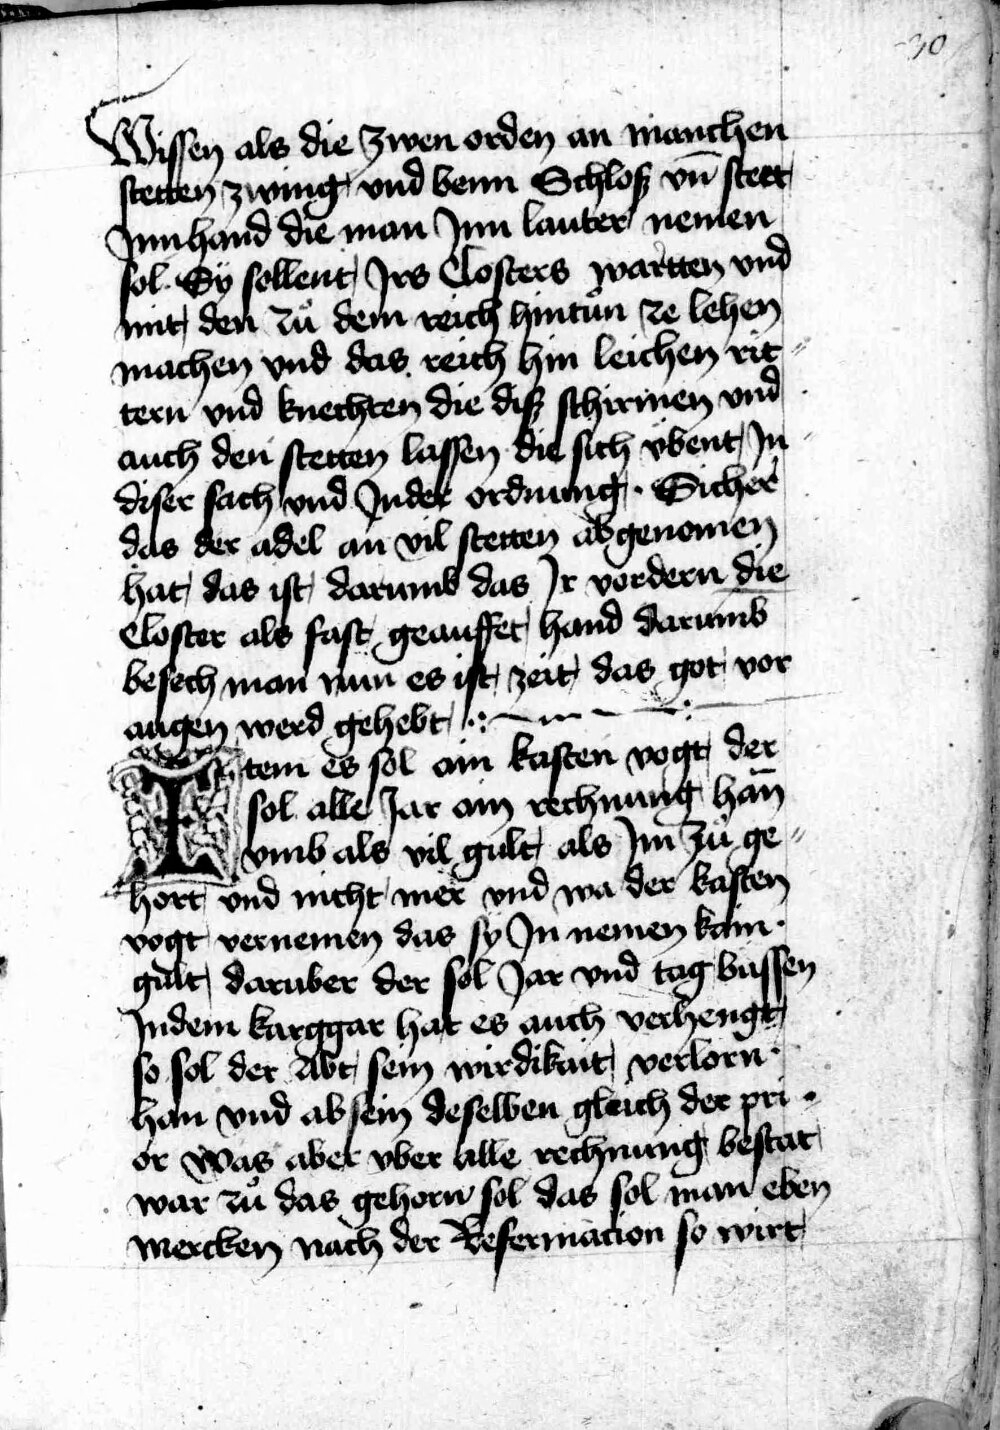 30
Wissen als die zwen orden an manchen
stetten zwing und benn Schloß vn̄ stett
Jnnhand die man Jnn lauter nemen
sol. Sÿ sollent Jrs Closters wartten vnd
mit den zů dem reich hintůn ze lehen
machen vnd das reich hin leichen rit〃
tern vnd knechten die diß schirmen vnd
auch den stetten lassen die sich vbent Jn〃
diser sach vnd Jnder ordnung. Sicher
das der adel an vil stetten abgenomen
hat das ist darumb das Jr vordern die
Closter als fast geauffet hand darumb
besech man nun es ist zeit das got vor
augen werd gehebt
Item es sol ain kasten vogt der
sol alle Jar ain rechnung han̄
vmb als vil gult als Jm zů ge〃
hort vnd nicht mer vnd wa der kasten
vogt vernemen das sÿ Jn nemen kain
gult daruber der sol Jar vnd tag bussen
Jndem karggar hat es auch verhengt
so sol der Abt sein wirdikait verlorn
han vnd absein deselben gleich der pri
or Was aber vber alle rechnung bestat
war zů das gehorn sol das sol man eben
mercken nach der Refermacion so wirt